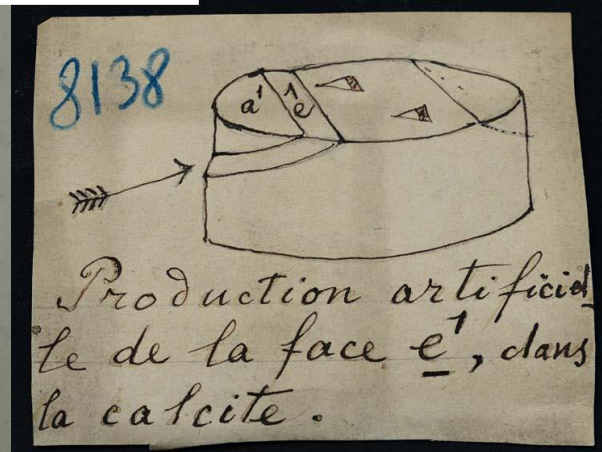 8138
a¹ e¹
Production artificiel
le de la face e¹, dans
la calcite.